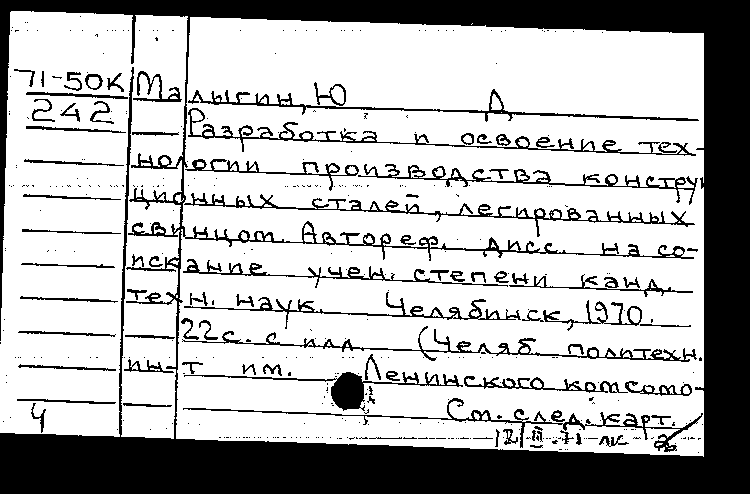 71-50К Малыгин, Ю Д
242 Разработка и освоение тех-
нологии производства констру
ционных сталей, легированных
свинцом. Автореф. дисс. на со-
искание учен. степени канд.
техн. наук. Челябинск, 1970.
22с. с илл. (Челяб. политехн.
ин-т им. Ленинского комсомо-
См. след. карт.
4